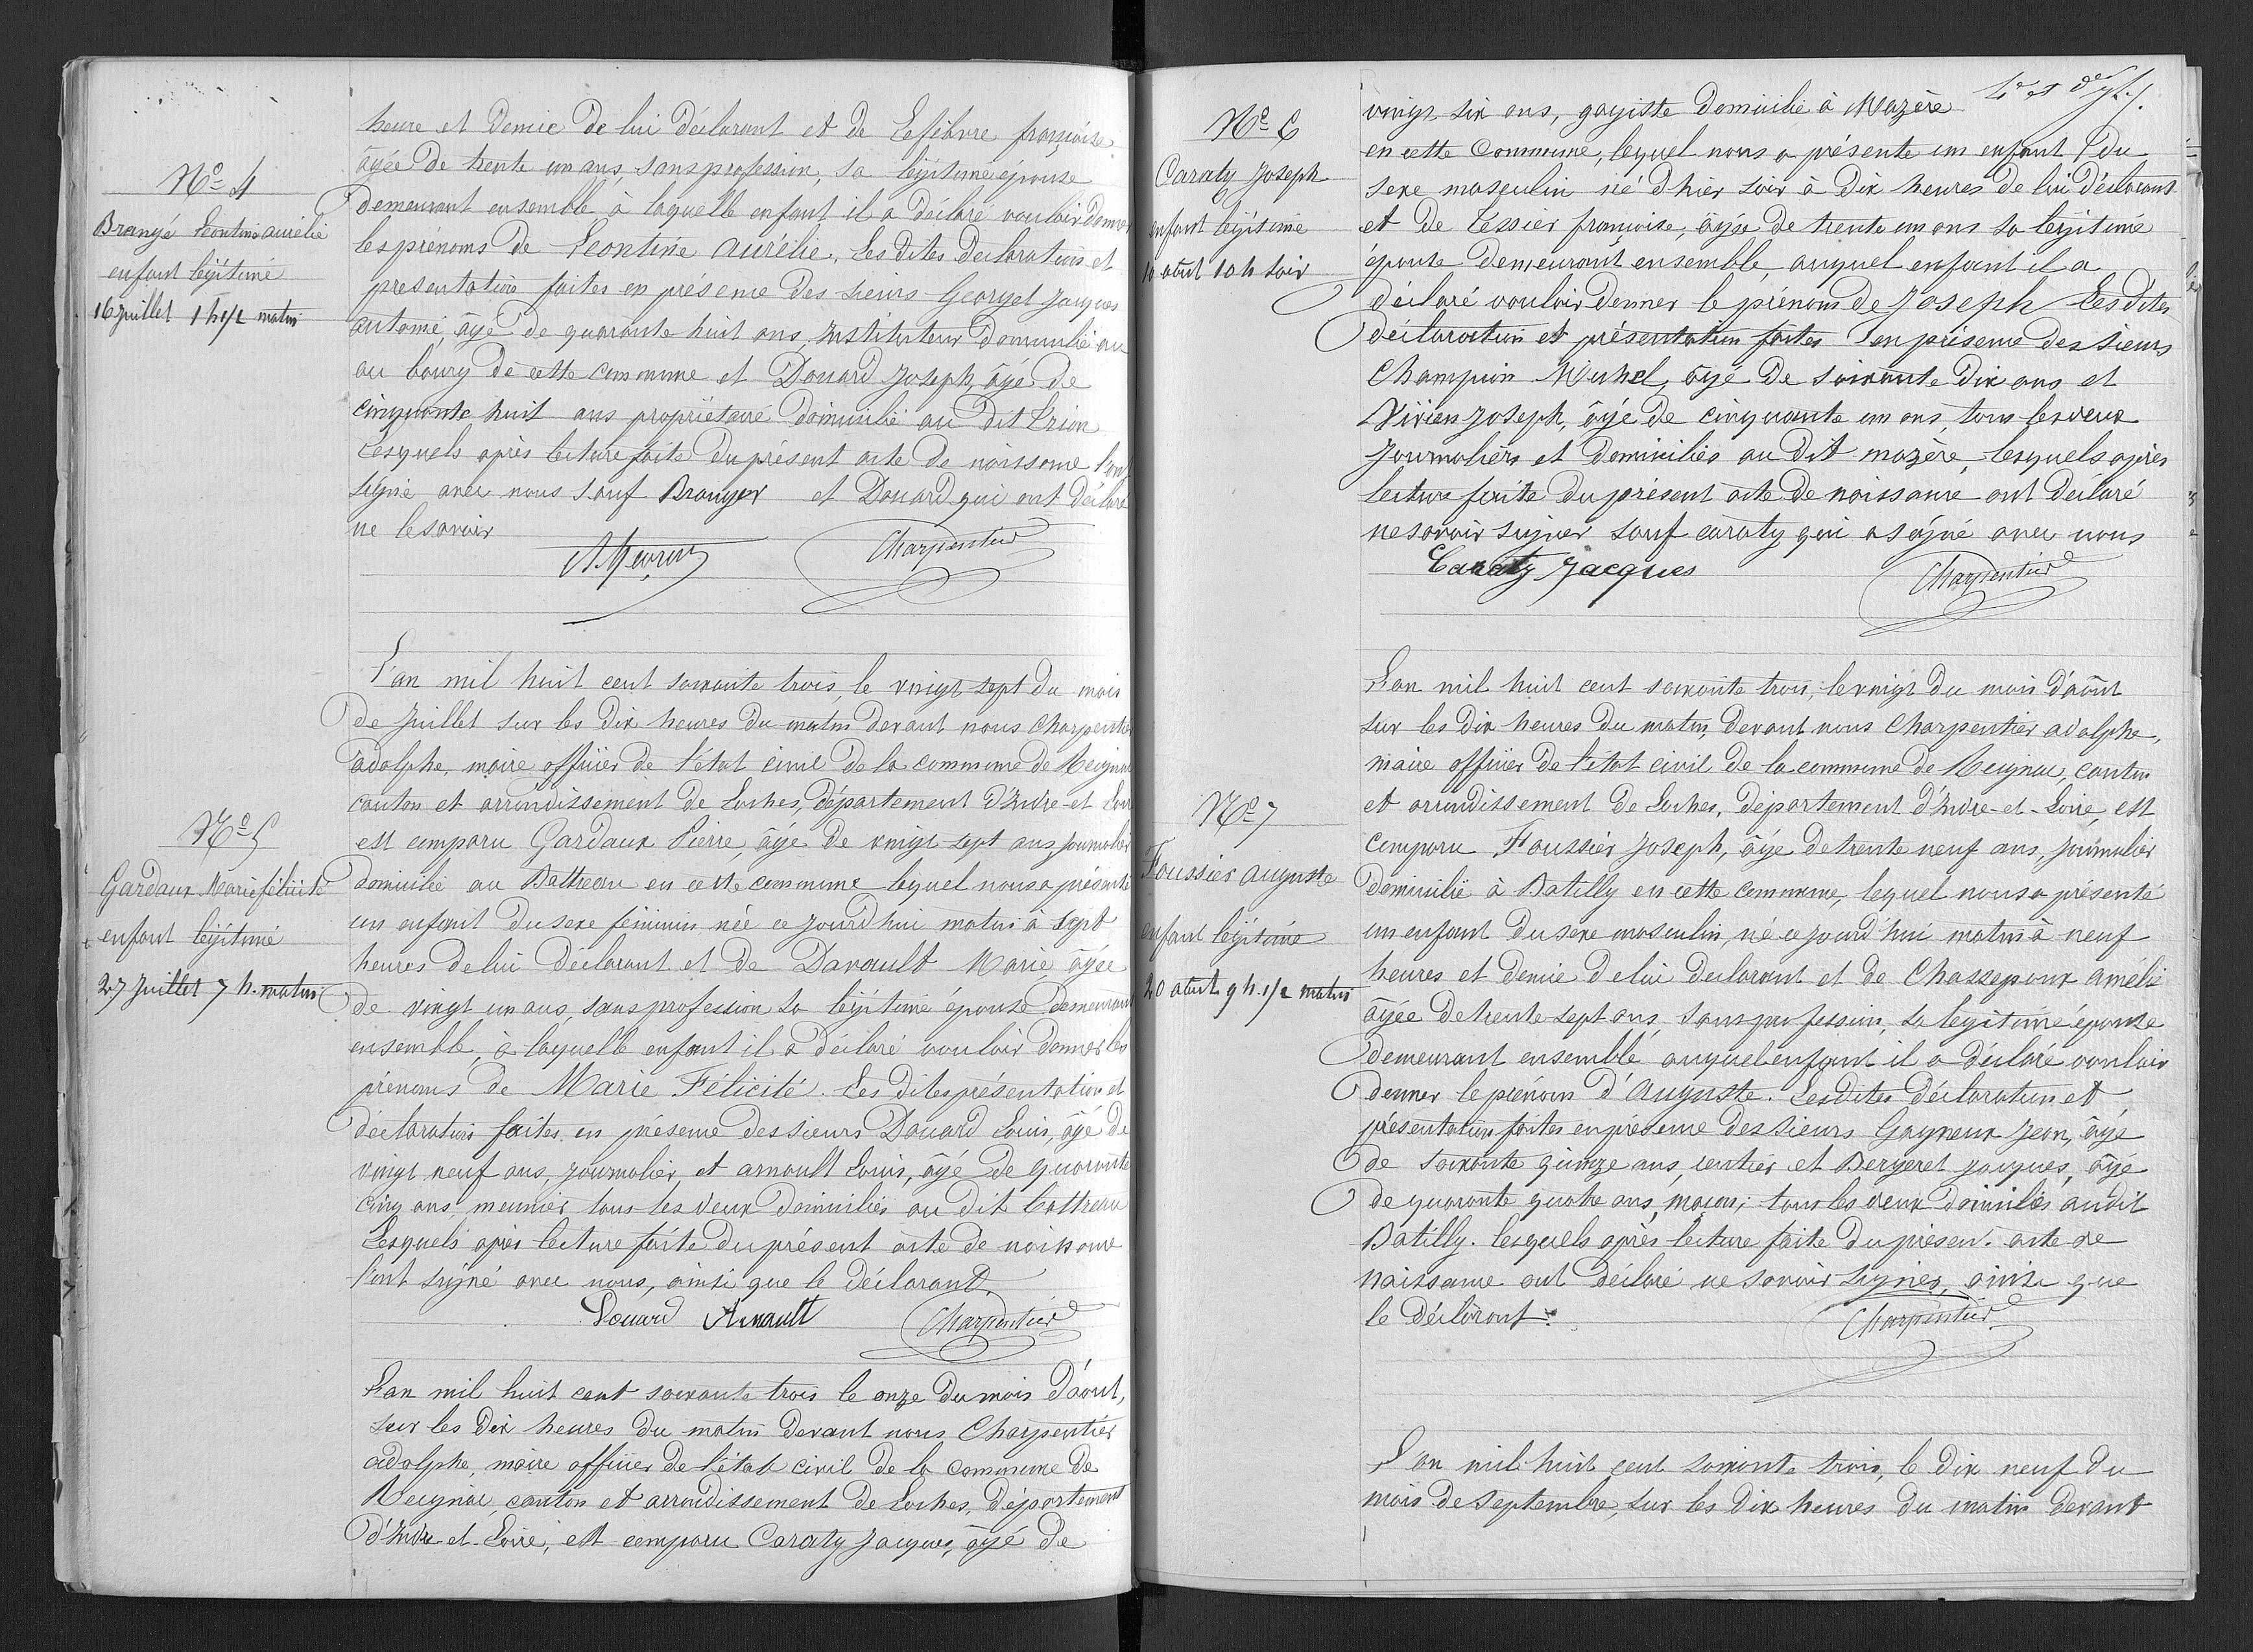 heure et demie de lui déclarant et de Lefebvre françoise
âgée de trente un ans, sans profession, sa légitime épouse
demeurant ensemble à laquelle enfant il a déclaré vouloir donner
les prénoms de Leontine Aurélie. Les dites déclaration et
présentation faites en présence des sieurs Georget Jacques
antome, âgé de quarante huit ans, Instituteur domicilié au
au bourg de cette commune et Douard Joseph, âgé de
cinquante huit ans propriétaire domicilié au dit
Lesquels après lecture faite du présent acte de naissance l'ont
signé avec nous sauf Branger et Douard qui ont déclaré
ne le savoir
Charpentier
N° 4
Brangé Leontine aurélie
enfant légitime
16 juillet 1 h 1/2 matin
L'an mil huit cent soixante trois, le vingt sept du mois
de Juillet sur les dix heures du matin devant nous Charpentier
adolphe, maire officier de l'état civil de la commune de Reignac
canton et arrondissement de Loches, département d'Indre-et-Loire
est comparu Gardaux Pierre, âgé de vingt sept ans journalier
domicilié au Battreau en cette commune lequel nous a présenté
un enfant du sexe féminin née ce jourd'hui matin à sept
heures de lui déclarant et de Davault Marie, âgée
de vingt un ans, sans profession sa légitime épouse demeurant
ensemble, à laquelle enfant il a déclaré vouloir donner les
prénoms de Marie Félicité. Les dites présentation et
déclaration faites en présence des sieurs Douard Louis, âgé de
vingt neuf ans, journalier, et arnault Louis, âgé de quarante
cinq ans meunier tous les deux domiciliés au dit Battreau
Lesquels après lecture faite du présent acte de naissance
l'ont signé avec nous, ainsi que le déclarant.
Douard Arnault Charpentier
N° 5
Gardaux Marie félicité
enfant légitime
27 Juillet 7 h. matin
L'an mil huit cent soixante trois le onze du mois d'août,
sur les dix heures du matin devant nous Charpentier
adolphe, maire officier de l'état civil de la commune de
Reignac, canton et arrondissement de Loches, département
d'Indre-et-Loire, est comparu Caraty Jacques, âgé de
N° 6
Caraty Joseph
enfant légitime
10 août 10 h soir
vingt six ans, gagiste domicilié à Mazère
en cette commune, lequel nous a présenté un enfant du
sexe masculin né d'hier soir à dix heures de lui déclarant
et de Tessier françoise, âgée de trente un ans sa légitime
épouse demeurant ensemble, auquel enfant il a
déclaré vouloir donner le prénom de Joseph Les dites
déclaration et présentation faites en présence des sieurs
Champion Michel, âgé de soixante dix ans et
Vivien Joseph, âgé de cinquante un ans, tous les deux
journaliers et domiciliés au dit mazère, lesquels après
lecture faite du présent acte de naissance ont déclaré
ne savoir signer sauf caraty qui a signé avec nous
Caraty Jacques Charpentier
L'an mil huit cent soixante trois, le vingt du mois d'août
sur les dix heures du matin, devant nous Charpentier adolphe,
maire officier de l'état civil de la commune de Reignac, canton
et arrondissement de Loches, département d'Indre-et-Loire, est
comparu Foussier Joseph, âgé de trente neuf ans, journalier
domicilié à Batilly en cette commune, lequel nous a présenté
un enfant du sexe masculin, né ce jourd'hui matin à neuf
heures et demie de lui déclarant et de Chassepoux Amélie
âgée de trente sept ans, sans profession, sa légitime épouse
demeurant ensemble auquel enfant il a déclaré vouloir
donner le prénom d'Auguste. Les dites déclaration et
présentation faites en présence des sieurs Gagneux Jean, âgé
de soixante quinze ans, rentier et Bergeret Jacques, âgé
de quarante quatre ans, maçon, tous les deux domiciliés au dit
Batilly. Lesquels après lecture faite du présent acte de
naissance ont déclaré ne savoir signer, ainsi que
le déclarant.
Charpentier
N° 7
Foussier auguste
enfant légitime
20 août 9 h. 1/2 matin
L'an mil huit cent soixante trois, le dix neuf du
mois de Septembre, sur les dix heures du matin devant